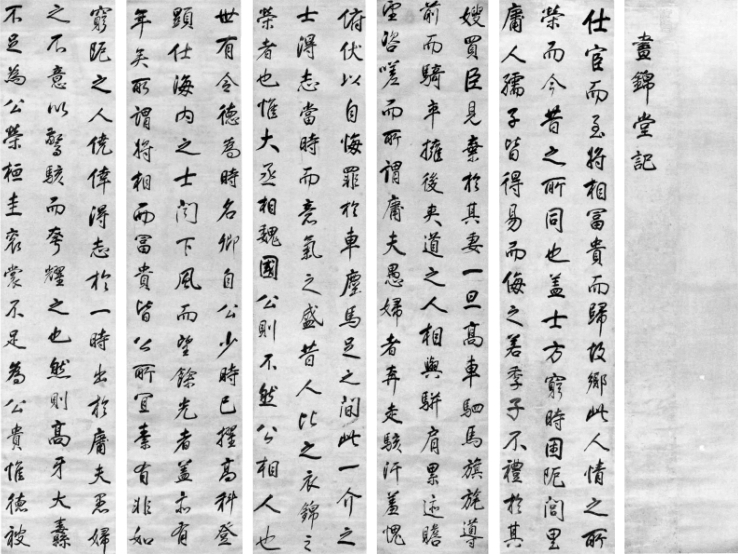 晝錦堂記
仕宦而至將相富貴而歸故鄉此人情之所
榮而今昔之所同也蓋士方窮時困阨閭里
庸人孺子皆得易而侮之若季子不禮於其
嫂買臣見棄於其妻一旦高車駟馬旗旄導
前而騎卒擁後夾道之人相與駢肩累迹瞻
望咨嗟而所謂庸夫愚婦者奔走駭汗羞愧
俯伏以自悔罪於車塵馬足之間此一介之
士得志當時而意氣之盛昔人比之衣錦之
榮者也惟大丞相魏國公則不然公相人也
世有令德為時名卿自公少時已擢高科登
顯仕海內之士聞下風而望餘光者蓋亦有
年矣所謂將相而富貴皆公所宜素有非如
窮阨之人僥倖得志於一時出於庸夫愚婦
之不意以驚駭而夸耀之也然則高牙大纛
不足為公榮桓圭袞裳不足為公貴惟德被